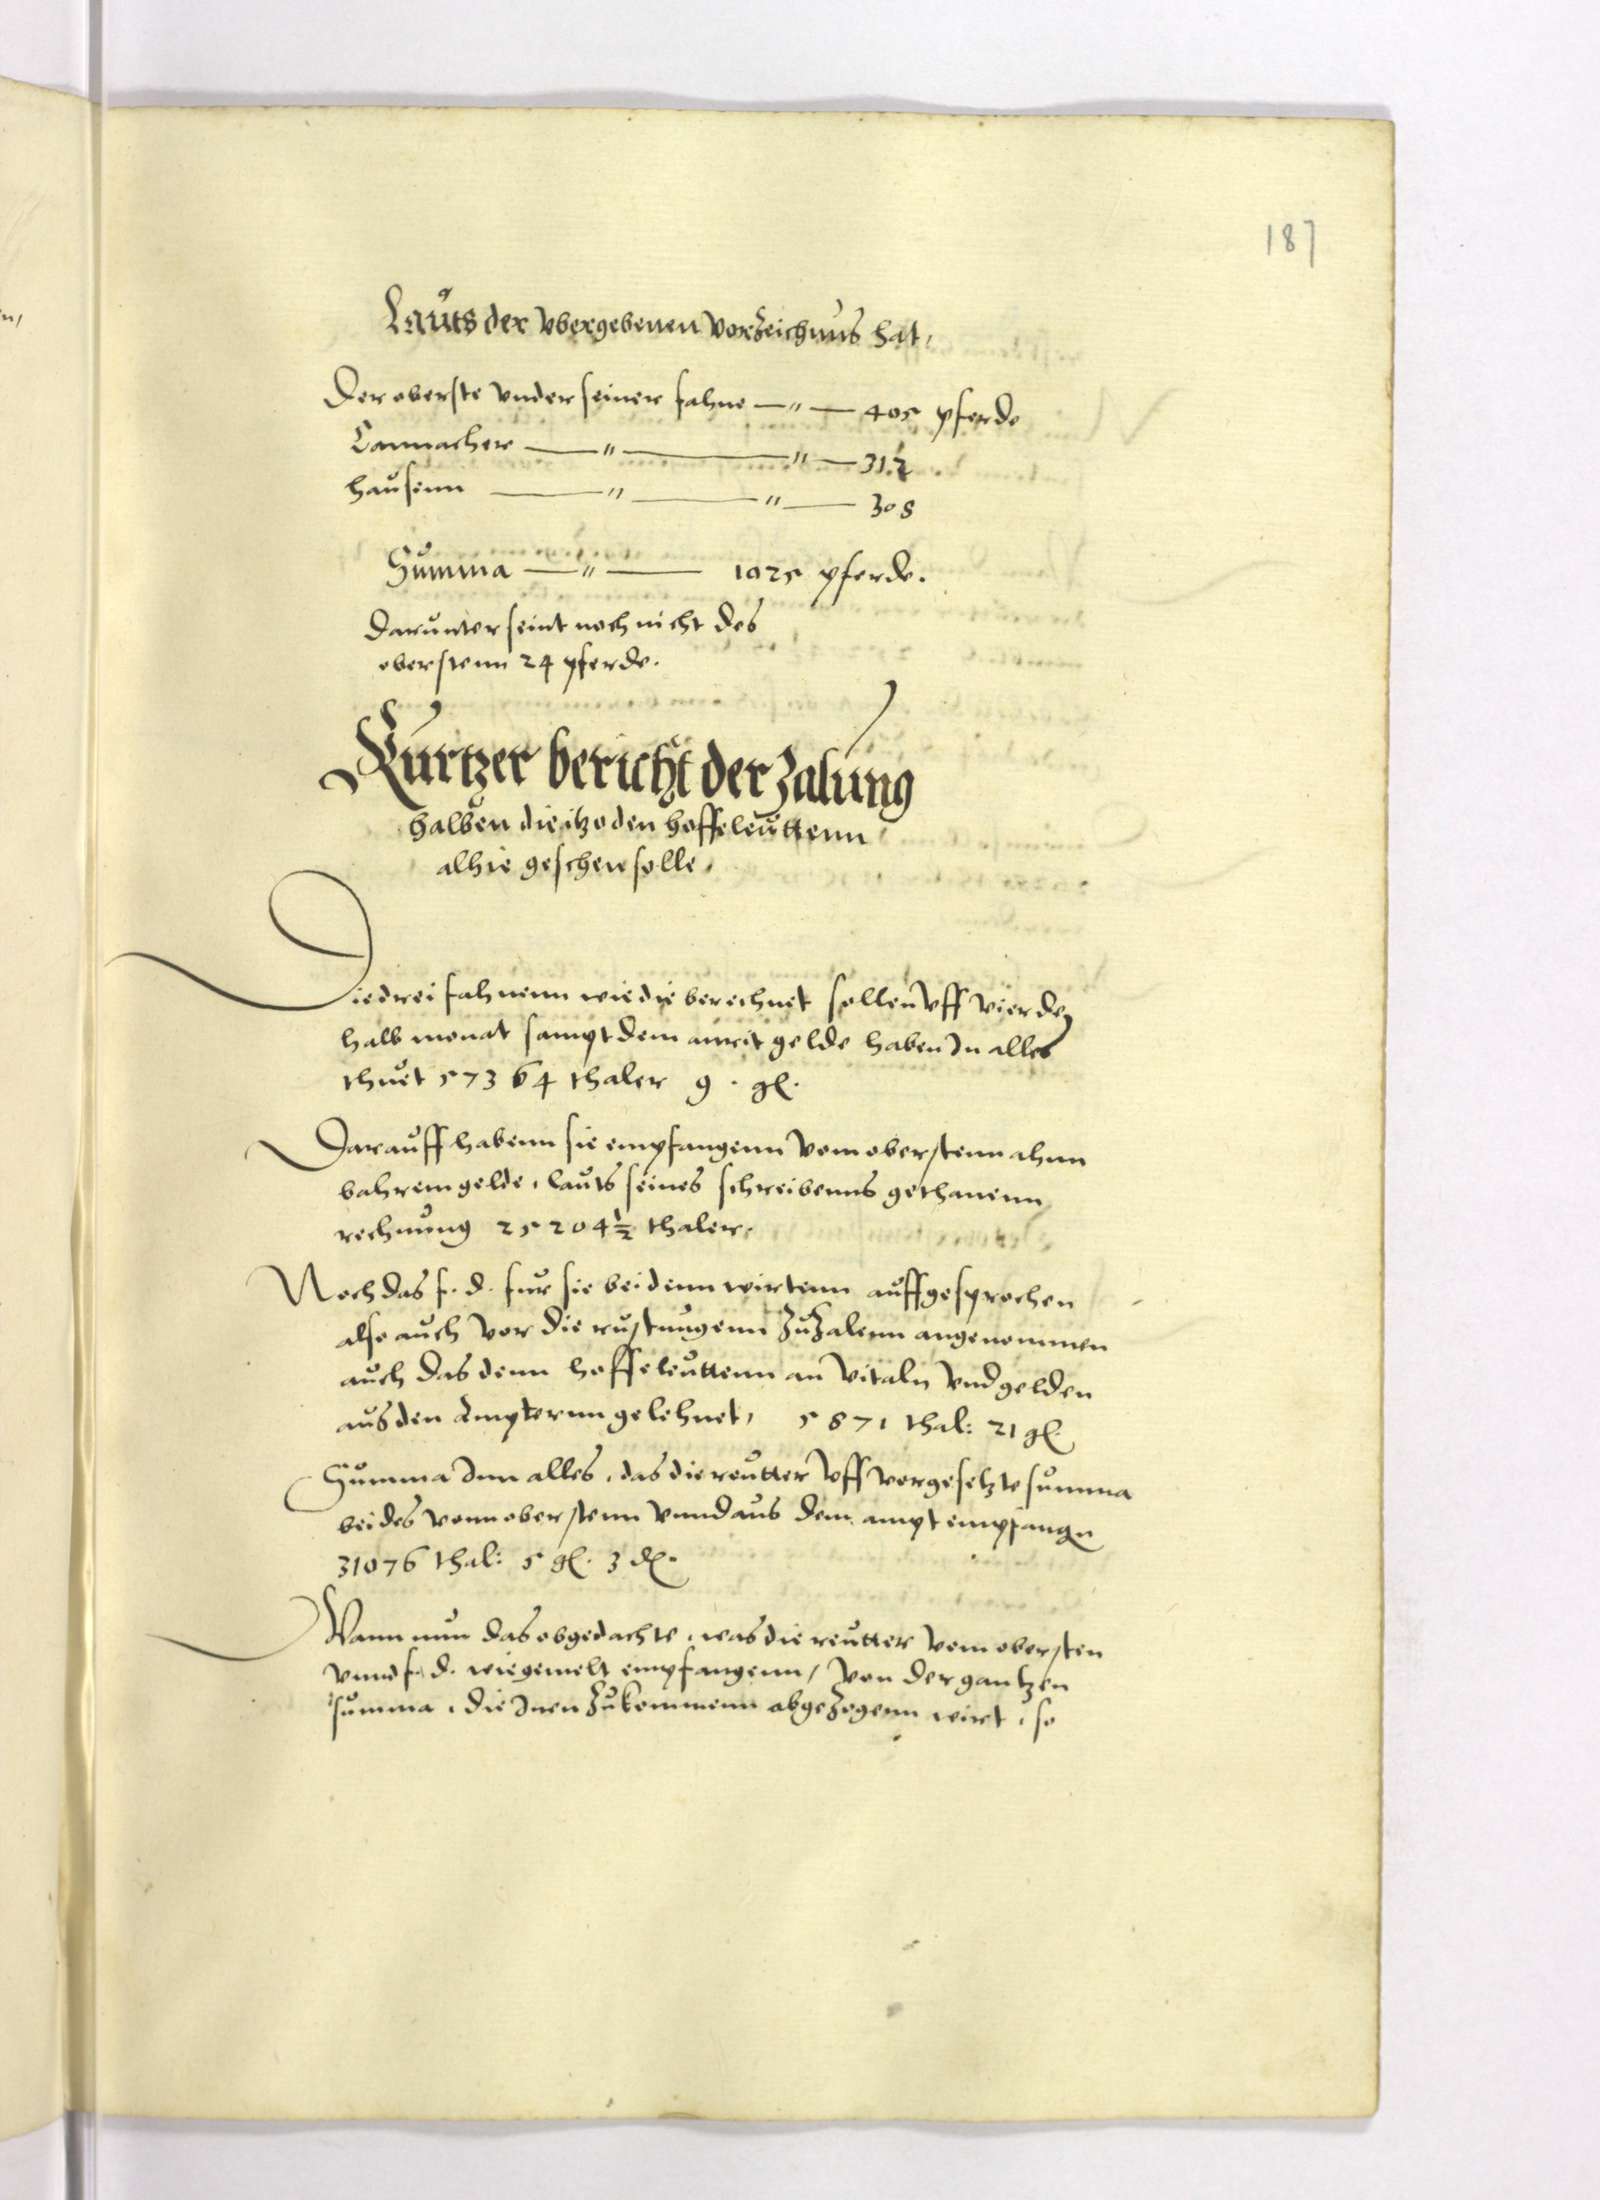 187
Lauts der vbergebenen vorzeichnus hat,
Der oberste vnder seiner fahne — " — 405 pferde
Cannacher — " — " — 312
hausenn — " — " — 308
Summa — " — 1025 pferde.
Darunter seint noch nicht des
oberstenn 24 pferde.
Kurtzer bericht der Zalung
halben die itzo den hoffeleuttenn
alhie geschen solle,
Die drei fahnenn wie die berechnet sollen vff vierde
halb monat sampt dem anrit gelde haben In alles
thuet 57364 thaler 9. gl.
Darauff habenn sie empfangenn vom oberstenn ahnn
bahrem gelde, lauts seines schreibenns gethanenn
rechnung 25204½ thaler.
Noch das f. d. fur sie bei denn wirtenn auffgesprochen
also auch vor die rustungenn zuzalenn angenommen
auch das denn hoffeleuttenn an vitaln vnd gelden
aus den Ampternn gelehnet, 5871 thal: 21 gl.
Summa Inn alles, das die reutter vff vorgesetzte summa
beides vonn oberstenn vnnd aus dem ampt empfangn
31076 thal: 5 gl. 3 d.
Wann nun das obgedachte, was die reutter vom obersten
vnnd f. d. wie gemelt empfangenn, von der gantzen
summa, die Inen zukommenn abgezogenn wirt, so